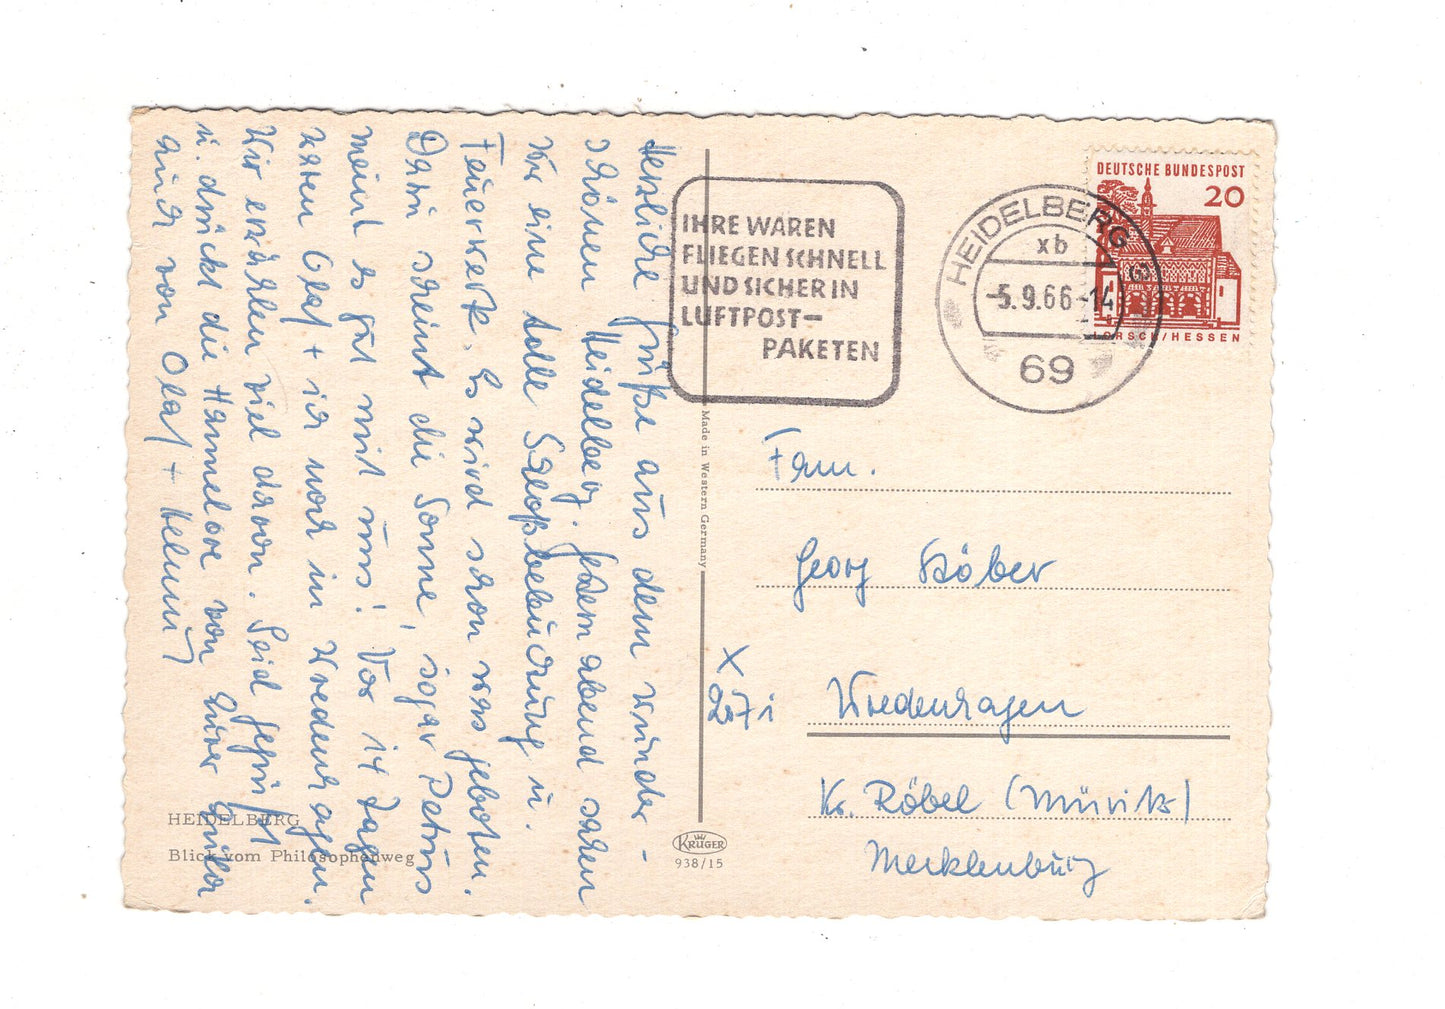 Herzliche Grüße aus dem wunder-
schönen Heidelberg. Gestern abend sahen
wir eine tolle Schloßbeleuchtung u.
Feuerwerk. Es wird schon was geboten.
Dazu scheint die Sonne, sogar Petrus
meint es gut mit uns! Vor 14 Tagen
waren Olaf + ich noch in Wredenhagen.
Wir erzählen viel davon. Seid gegrüßt
u. drückt die Hannelore von Eurer
auch von Olaf + Helmut
HEIDELBERG
Blick vom Philosophenweg
Made in Western Germany
KRÜGER
938/15
IHRE WAREN
FLIEGEN SCHNELL
UND SICHER IN
LUFTPOST-
PAKETEN
HEIDELBERG
xb
-5.9.66-14
69
DEUTSCHE BUNDESPOST
20
LORSCH/HESSEN
Fam.
Georg Köber
x
207i
Wredenhagen
Kr. Röbel (Müritz)
Mecklenburg